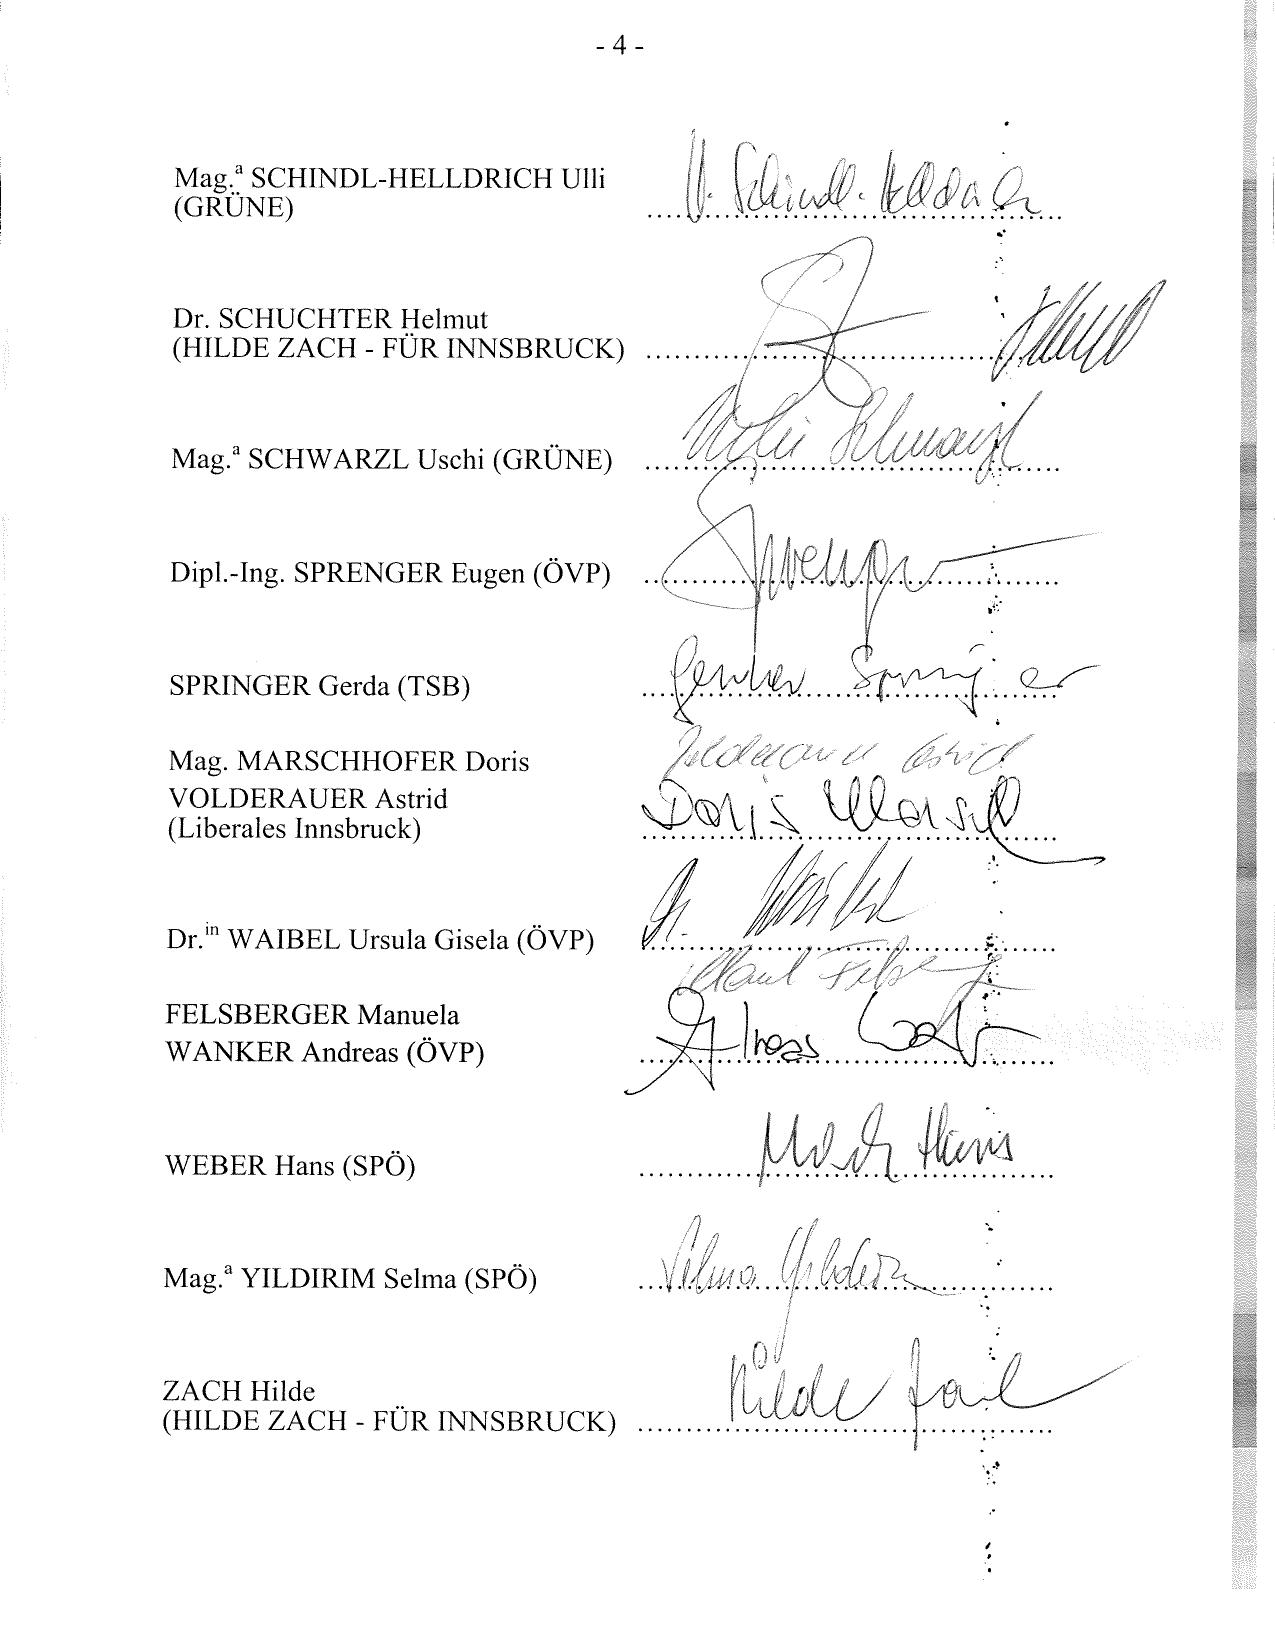 - 4 -
Mag.ª SCHINDL-HELLDRICH Ulli
(GRÜNE)
U. Schindl-Helldrich
Dr. SCHUCHTER Helmut
(HILDE ZACH - FÜR INNSBRUCK)
Mag.ª SCHWARZL Uschi (GRÜNE)
Uschi Schwarzl
Dipl.-Ing. SPRENGER Eugen (ÖVP)
Sprenger
SPRINGER Gerda (TSB)
Springer
Mag. MARSCHHOFER Doris
Astrid
VOLDERAUER Astrid
Doris
(Liberales Innsbruck)
Dr.in WAIBEL Ursula Gisela (ÖVP)
Waibel
FELSBERGER Manuela
WANKER Andreas (ÖVP)
Andreas
WEBER Hans (SPÖ)
Hans
Mag.ª YILDIRIM Selma (SPÖ)
Selma Yildirim
ZACH Hilde
Hilde Zach
(HILDE ZACH - FÜR INNSBRUCK)